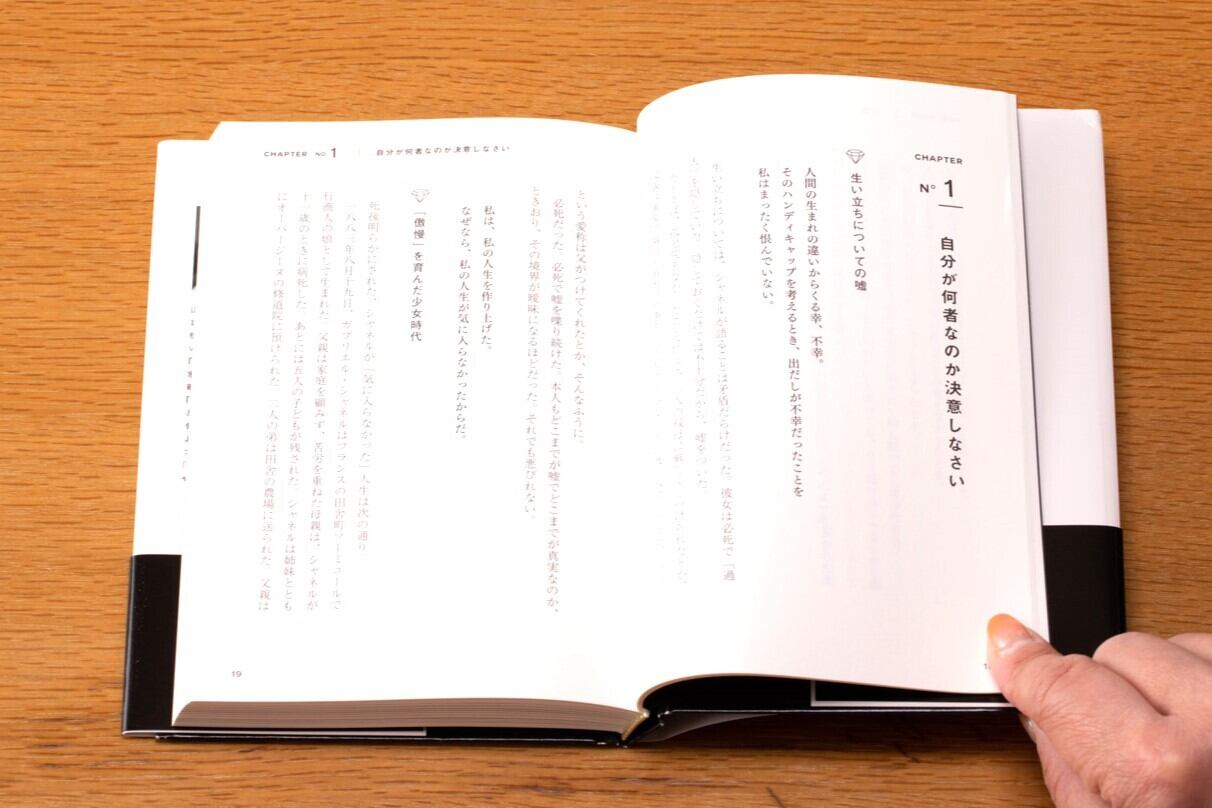 CHAPTER
N° 1
自分が何者なのか決意しなさい
生い立ちについての嘘
人間の生まれの違いからくる幸、不幸。
そのハンディキャップを考えるとき、出だしが不幸だったことを
私はまったく恨んでいない。
生い立ちについては、シャネルが語ることは矛盾だらけだった。彼女は必死で「過
CHAPTER NO 1
自分が何者なのか決意しなさい
という愛称は父がつけてくれたとか、そんなふうに。
必死だった。必死で嘘を喋り続けた。本人もどこまでが嘘でどこまでが真実なのか、
ときおり、その境界が曖昧になるほどだった。それでも悪びれない。
私は、私の人生を作り上げた。
なぜなら、私の人生が気に入らなかったからだ。
「傲慢」を育んだ少女時代
死後明らかにされた、シャネルが「気に入らなかった」人生は次の通り
一八八三年八月十九日、ガブリエル・シャネルはフランスの田舎町ソーミュールで
行商人の娘として生まれた。父親は家庭を顧みず、苦労を重ねた母親は、シャネルが
十一歳のときに病死した。あとには五人の子どもが残された。シャネルは姉妹ととも
にオーバージーヌの修道院に預けられた。二人の弟は田舎の農場に送られた。父親は
19